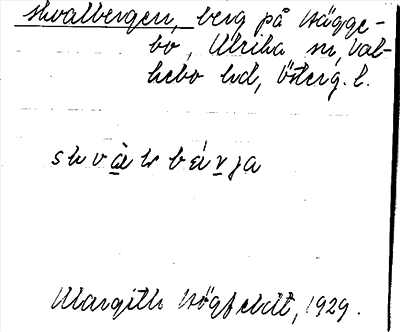 skvalbergen, berg på Hägge-
bo, Ulrika sn, Val-
kebo hd, Österg. l.
skvàlbǽrja
Margith Högfeldt, 1929.